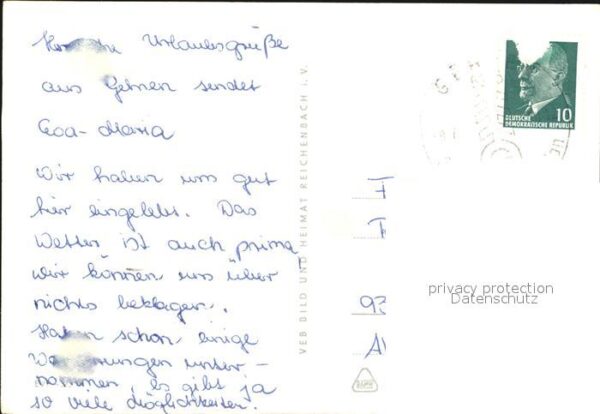 Urlaubsgrüße
aus Gehren sendet
Eva-Maria
Wir haben uns gut
hier eingelebt. Das
Wetter ist auch prima,
wir können uns über
nichts beklagen.
Haben schon einige
unter-
nommen, es gibt ja
so viele Möglichkeiten.
VEB BILD UND HEIMAT REICHENBACH I. V.
10
DEUTSCHE
DEMOKRATISCHE REPUBLIK
privacy protection
Datenschutz